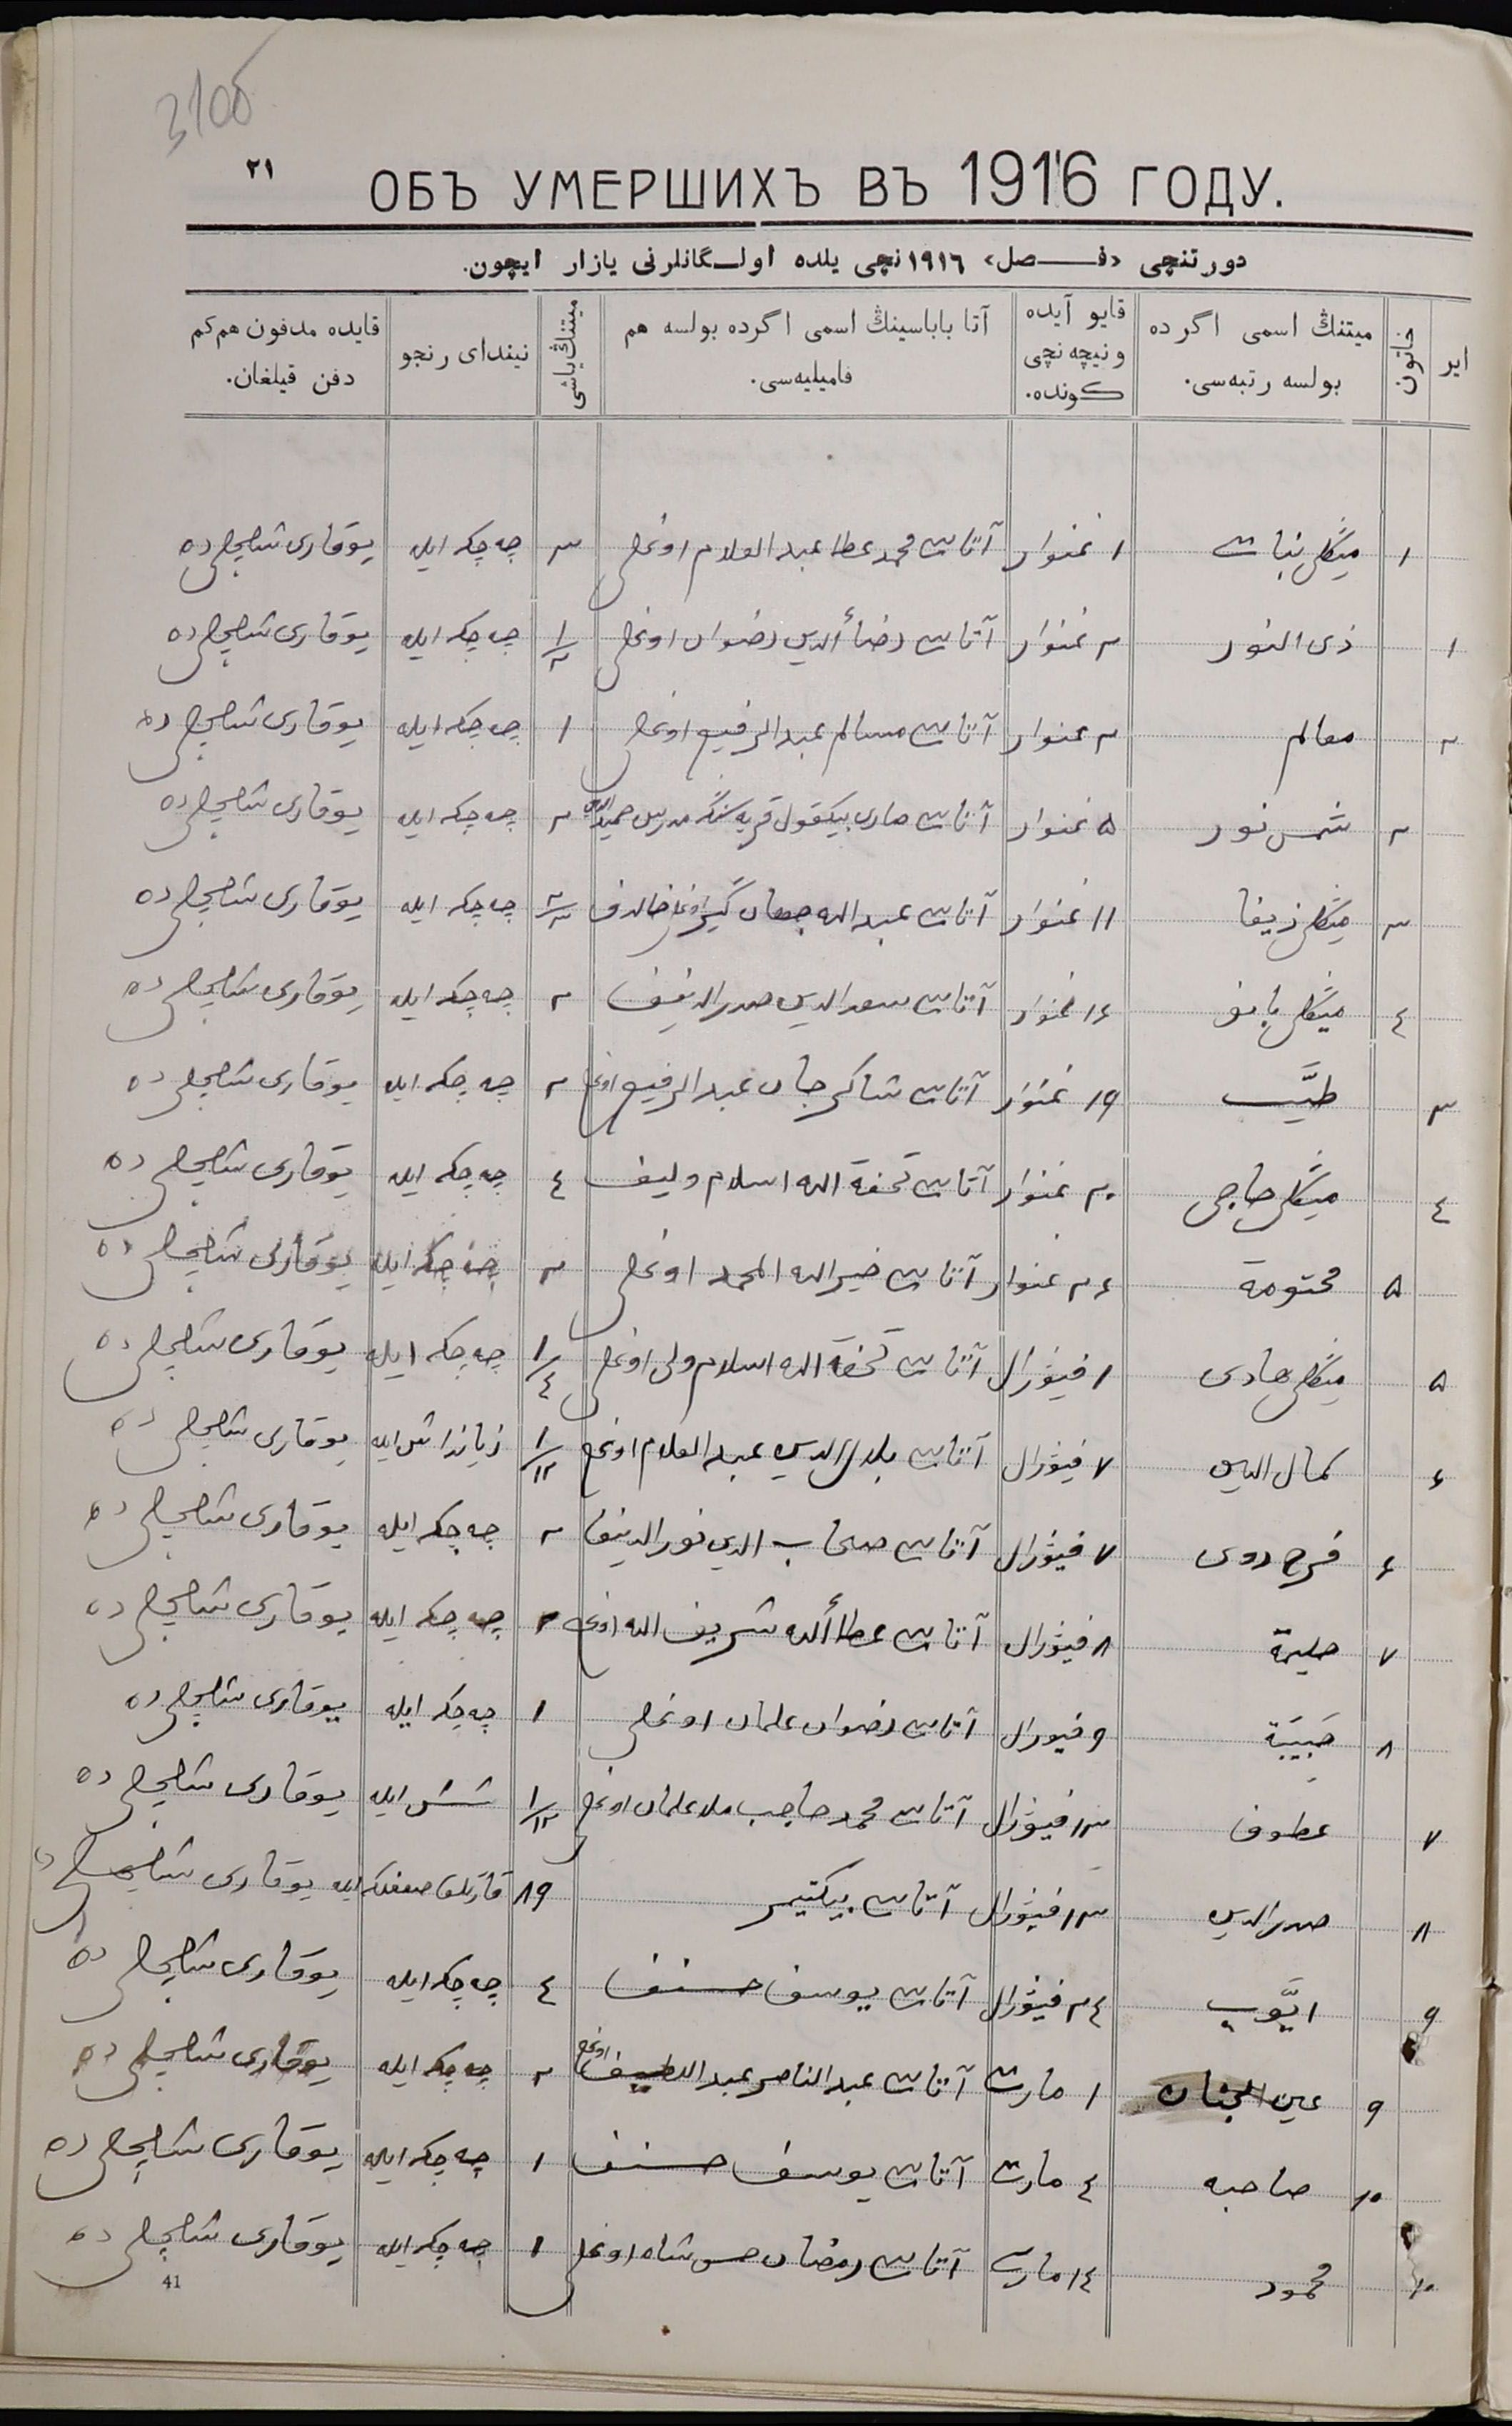 3100
٢١
ОБЪ УМЕРШИХЪ ВЪ 1916 ГОДУ.
دورتنچی «فـــصل» ١٩١٦نچی یلده اولـگانلرنی یازار ایچون.
ایر | خاتون | میتنڭ اسمی اگرده بولسه رتبه‌سی. | قایو آیده ونیچه نچی کونده. | آتا باباسینڭ اسمی اگرده بولسه هم فامیلیه‌سی. | میتنڭ یاشی | نیندای رنجو | قایده مدفون هم کم دفن قیلغان.
١ | مینکلی نبات | ١ غنوار | آتاسی محمد عطا عبد العلام اوغلی | ٣ | چه چکه ایله | یوقاری ده
١ | ذی النور | ٢ غنوار | آتاسی رضاء الدین رضوان اوغلی | ١/٢ | چه چکه ایله | یوقاری ده
٢ | معالم | ٢ غنوار | آتاسی مسالم عبد الرفیع اوغلی | ١ | چه چکه ایله | یوقاری ده
٢ | شمس نور | ٥ غنوار | آتاسی صاری بیکقول قریه | ٢ | چه چکه ایله | یوقاری ده
٣ | مینکلی زیفا | ١١ غنوار | آتاسی عبد الله جهان گیر اوغلی خالدف | ٢/٣ | چه چکه ایله | یوقاری ده
٤ | مینکلی بانو | ١٦ غنوار | آتاسی سعد الدین صدر الدینف | ٢ | چه چکه ایله | یوقاری ده
٣ | طیَّب | ١٩ غنوار | آتاسی شاکر جان عبد الرفیع اوغلی | ٢ | چه چکه ایله | یوقاری ده
٤ | مینکلی حاجی | ٢٠ غنوار | آتاسی تحفة الله اسلام ولیف | ٤ | چه چکه ایله | یوقاری ده
٥ | مختومة | ٢٦ غنوار | آتاسی خیر الله اوغلی | ٢ | چه چکه ایله | یوقاری ده
٥ | مینکلی هادی | ١ فیۋرال | آتاسی تحفة الله اسلام ولی اوغلی | ١/٤ | چه چکه ایله | یوقاری ده
٦ | کمال الدین | ٧ فیۋرال | آتاسی بلال الدین عبد العلام اوغلی | ١/١٢ | ایله | یوقاری ده
٦ | فرح روی | ٧ فیۋرال | آتاسی صحاب الدین نور الدینف | ٢ | چه چکه ایله | یوقاری ده
٧ | حلیمة | ٨ فیۋرال | آتاسی عطاء الله شریف الله اوغلی | ٢ | چه چکه ایله | یوقاری ده
٨ | حَبِیبَة | ٩ فیورال | آتاسی رضوان علمان اوغلی | ١ | چه چکه ایله | یوقاری ده
٧ | عطوف | ١٣ فیۋرال | آتاسی محمد صاحب ملا علمان اوغلی | ١/١٢ | شش ایله | یوقاری ده
٨ | صدر الدین | ١٣ فیۋرال | آتاسی بیکتیمر | ٨٩ | ایله | یوقاری ده
٩ | ایّوب | ٢٤ فیۋرال | آتاسی یوسف حسنف | ٤ | چه چکه ایله | یوقاری ده
٩ | عین الجنان | ١ مارت | آتاسی عبد الناصر عبد اللطیف اوغلی | ٢ | چه چکه ایله | یوقاری ده
١٠ | صاحبه | ٤ مارت | آتاسی یوسف حسنف | ١ | چه چکه ایله | یوقاری ده
١٠ | محمود | ١٤ مارت | آتاسی رمضان حسن شاه اوغلی | ١ | چه چکه ایله | یوقاری ده
41